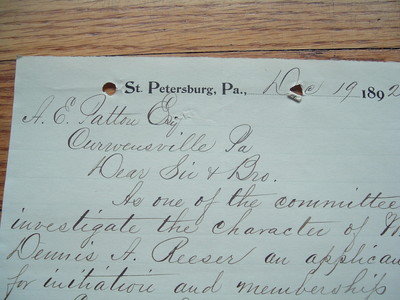 St. Petersburg, Pa., Dec 19 1892
A. E. Patton Esq.
Curwensville Pa
Dear Sir & Bro.
As one of the committee
investigate the character of M
Dennis A. Reeser an applican
for initiation and membership